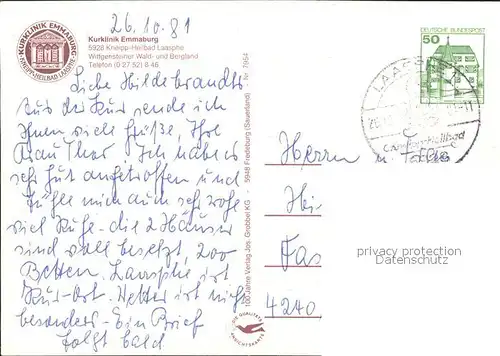 26.10.81
KURKLINIK EMMABURG
KNEIPP-HEILBAD LAASPHE
Kurklinik Emmaburg
5928 Kneipp-Heilbad Laasphe
Wittgensteiner Wald- und Bergland
Telefon (0 27 52) 8-46
50
DEUTSCHE BUNDESPOST
LAASPHE
Kneipp-Heilbad
Liebe Hildebrandts
Aus der Kur sende ich
Ihnen viele Grüße, Ihre
Frau Thor. Ich habe es
sehr gut angetroffen und
fühle mich auch sehr wohl
viel Ruhe - die 2 Häuser
sind voll besetzt, 200
Betten. Laasphe ist
Kur-Ort. Wetter ist nicht
besonders - Ein Brief
folgt bald
100 Jahre Verlag Jos. Grobbel KG - 5948 Fredeburg (Sauerland) - Nr. 7654
Herrn u. Frau
Hi
Fas
4240
privacy protection
Datenschutz
DIE QUALITÄTS
ANSICHTSKARTE